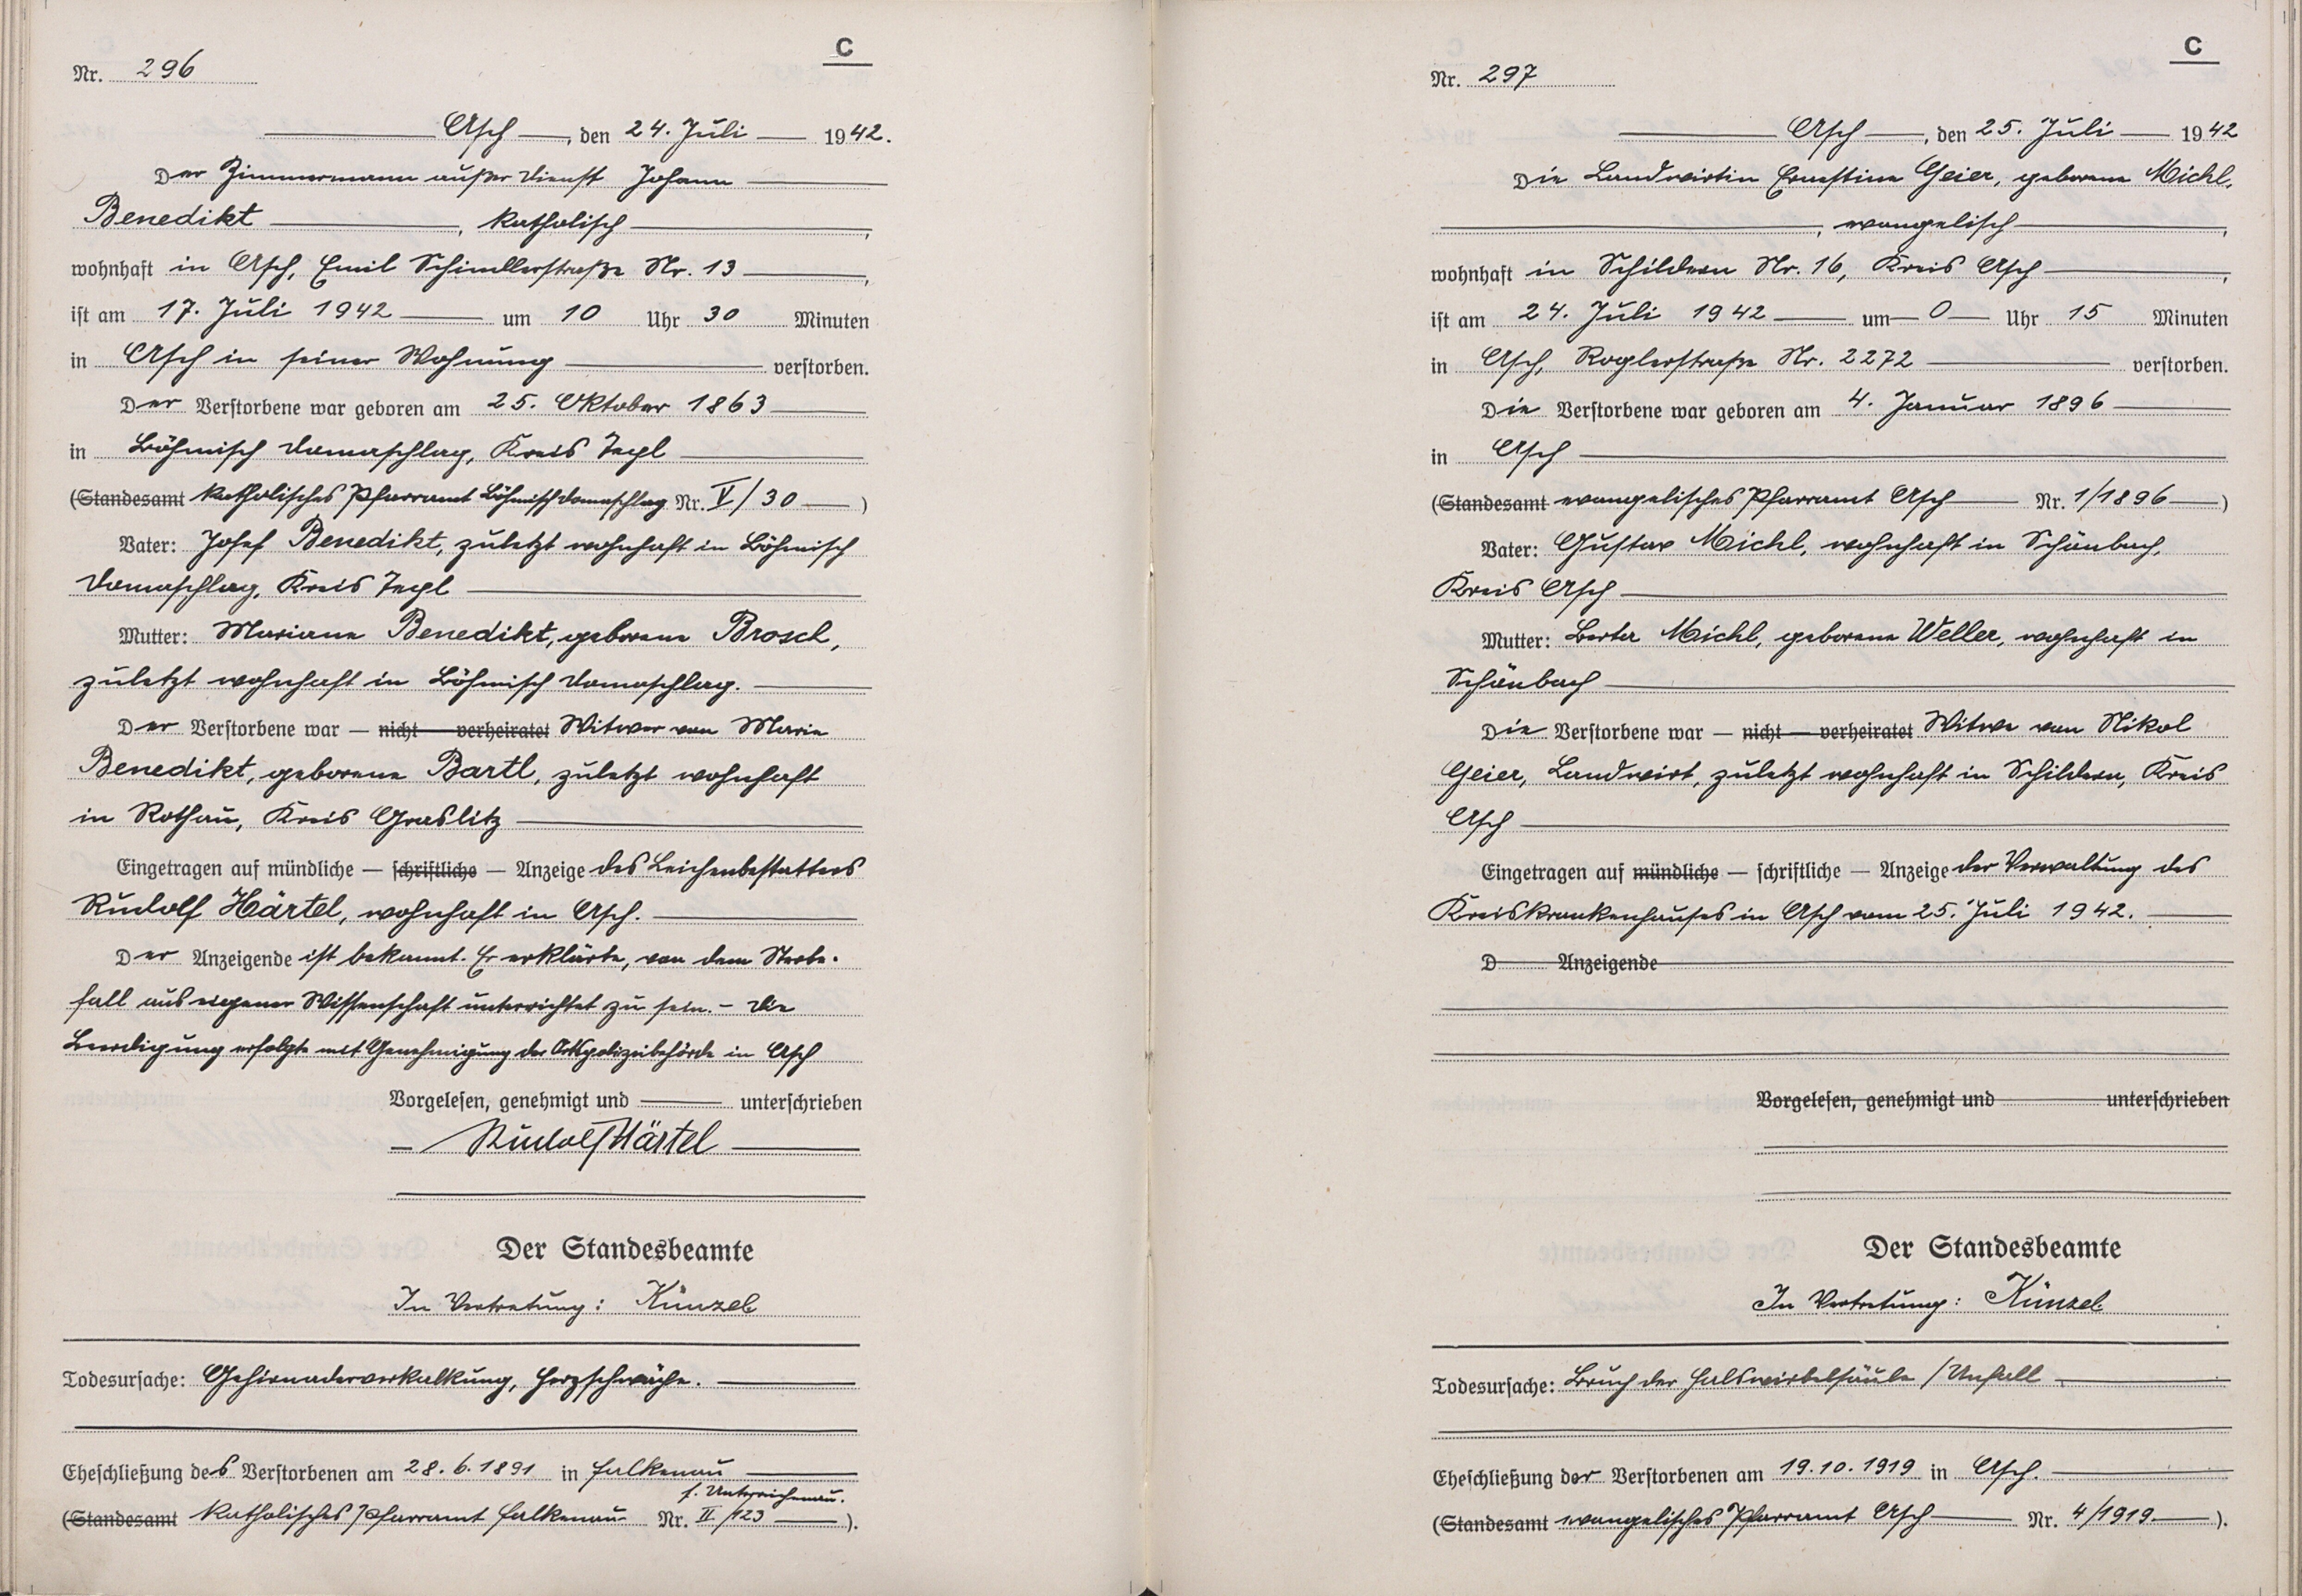 C
Nr. 296
Asch, den 24. Juli 1942.
Der Zimmermann außer Dienst Johann
Benedikt, katholisch,
wohnhaft in Asch, Emil Schindlerstraße Nr. 13,
ist am 17. Juli 1942 um 10 Uhr 30 Minuten
in Asch in seiner Wohnung verstorben.
Der Verstorbene war geboren am 25. Oktober 1863
in Böhmisch Domaschlag, Kreis Tepl
(Standesamt katholisches Pfarramt Böhmischdomaschlag Nr. V/30)
Vater: Josef Benedikt, zuletzt wohnhaft in Böhmisch
Domaschlag, Kreis Tepl
Mutter: Mariane Benedikt, geborene Brosch,
zuletzt wohnhaft in Böhmisch Domaschlag.
Der Verstorbene war — nicht — verheiratet Witwer von Marie
Benedikt, geborene Bartl, zuletzt wohnhaft
in Rothau, Kreis Graslitz
Eingetragen auf mündliche — schriftliche — Anzeige des Leichenbestatters
Rudolf Härtel, wohnhaft in Asch.
Der Anzeigende ist bekannt. Er erklärte, von dem Sterbe-
fall aus eigener Wissenschaft unterrichtet zu sein. – Die
Beerdigung erfolgte mit Genehmigung der Ortspolizeibehörde in Asch
Vorgelesen, genehmigt und unterschrieben
Rudolf Härtel
Der Standesbeamte
In Vertretung: Künzel
Todesursache: Gehirnaderverkalkung, Herzschwäche.
Eheschließung des Verstorbenen am 28.6.1891 in Falkenau
f. Unterreichenau.
(Standesamt katholisches Pfarramt Falkenau Nr. II/123).
C
Nr. 297
Asch, den 25. Juli 1942
Die Landwirtin Ernestine Geier, geborene Michl,
, evangelisch,
wohnhaft in Schildern Nr. 16, Kreis Asch,
ist am 24. Juli 1942 um 0 Uhr 15 Minuten
in Asch, Roglerstraße Nr. 2272 verstorben.
Die Verstorbene war geboren am 4. Januar 1896
in Asch
(Standesamt evangelisches Pfarramt Asch Nr. 1/1896)
Vater: Gustav Michl, wohnhaft in Schönbach,
Kreis Asch
Mutter: Berta Michl, geborene Weller, wohnhaft in
Schönbach
Die Verstorbene war — nicht — verheiratet Witwe von Nikol
Geier, Landwirt, zuletzt wohnhaft in Schildern, Kreis
Asch
Eingetragen auf mündliche — schriftliche — Anzeige der Verwaltung des
Kreiskrankenhauses in Asch vom 25. Juli 1942.
D Anzeigende
Vorgelesen, genehmigt und unterschrieben
Der Standesbeamte
In Vertretung: Künzel
Todesursache: Bruch der Halswirbelsäule / Unfall
Eheschließung der Verstorbenen am 19.10.1919 in Asch.
(Standesamt evangelisches Pfarramt Asch Nr. 4/1919).